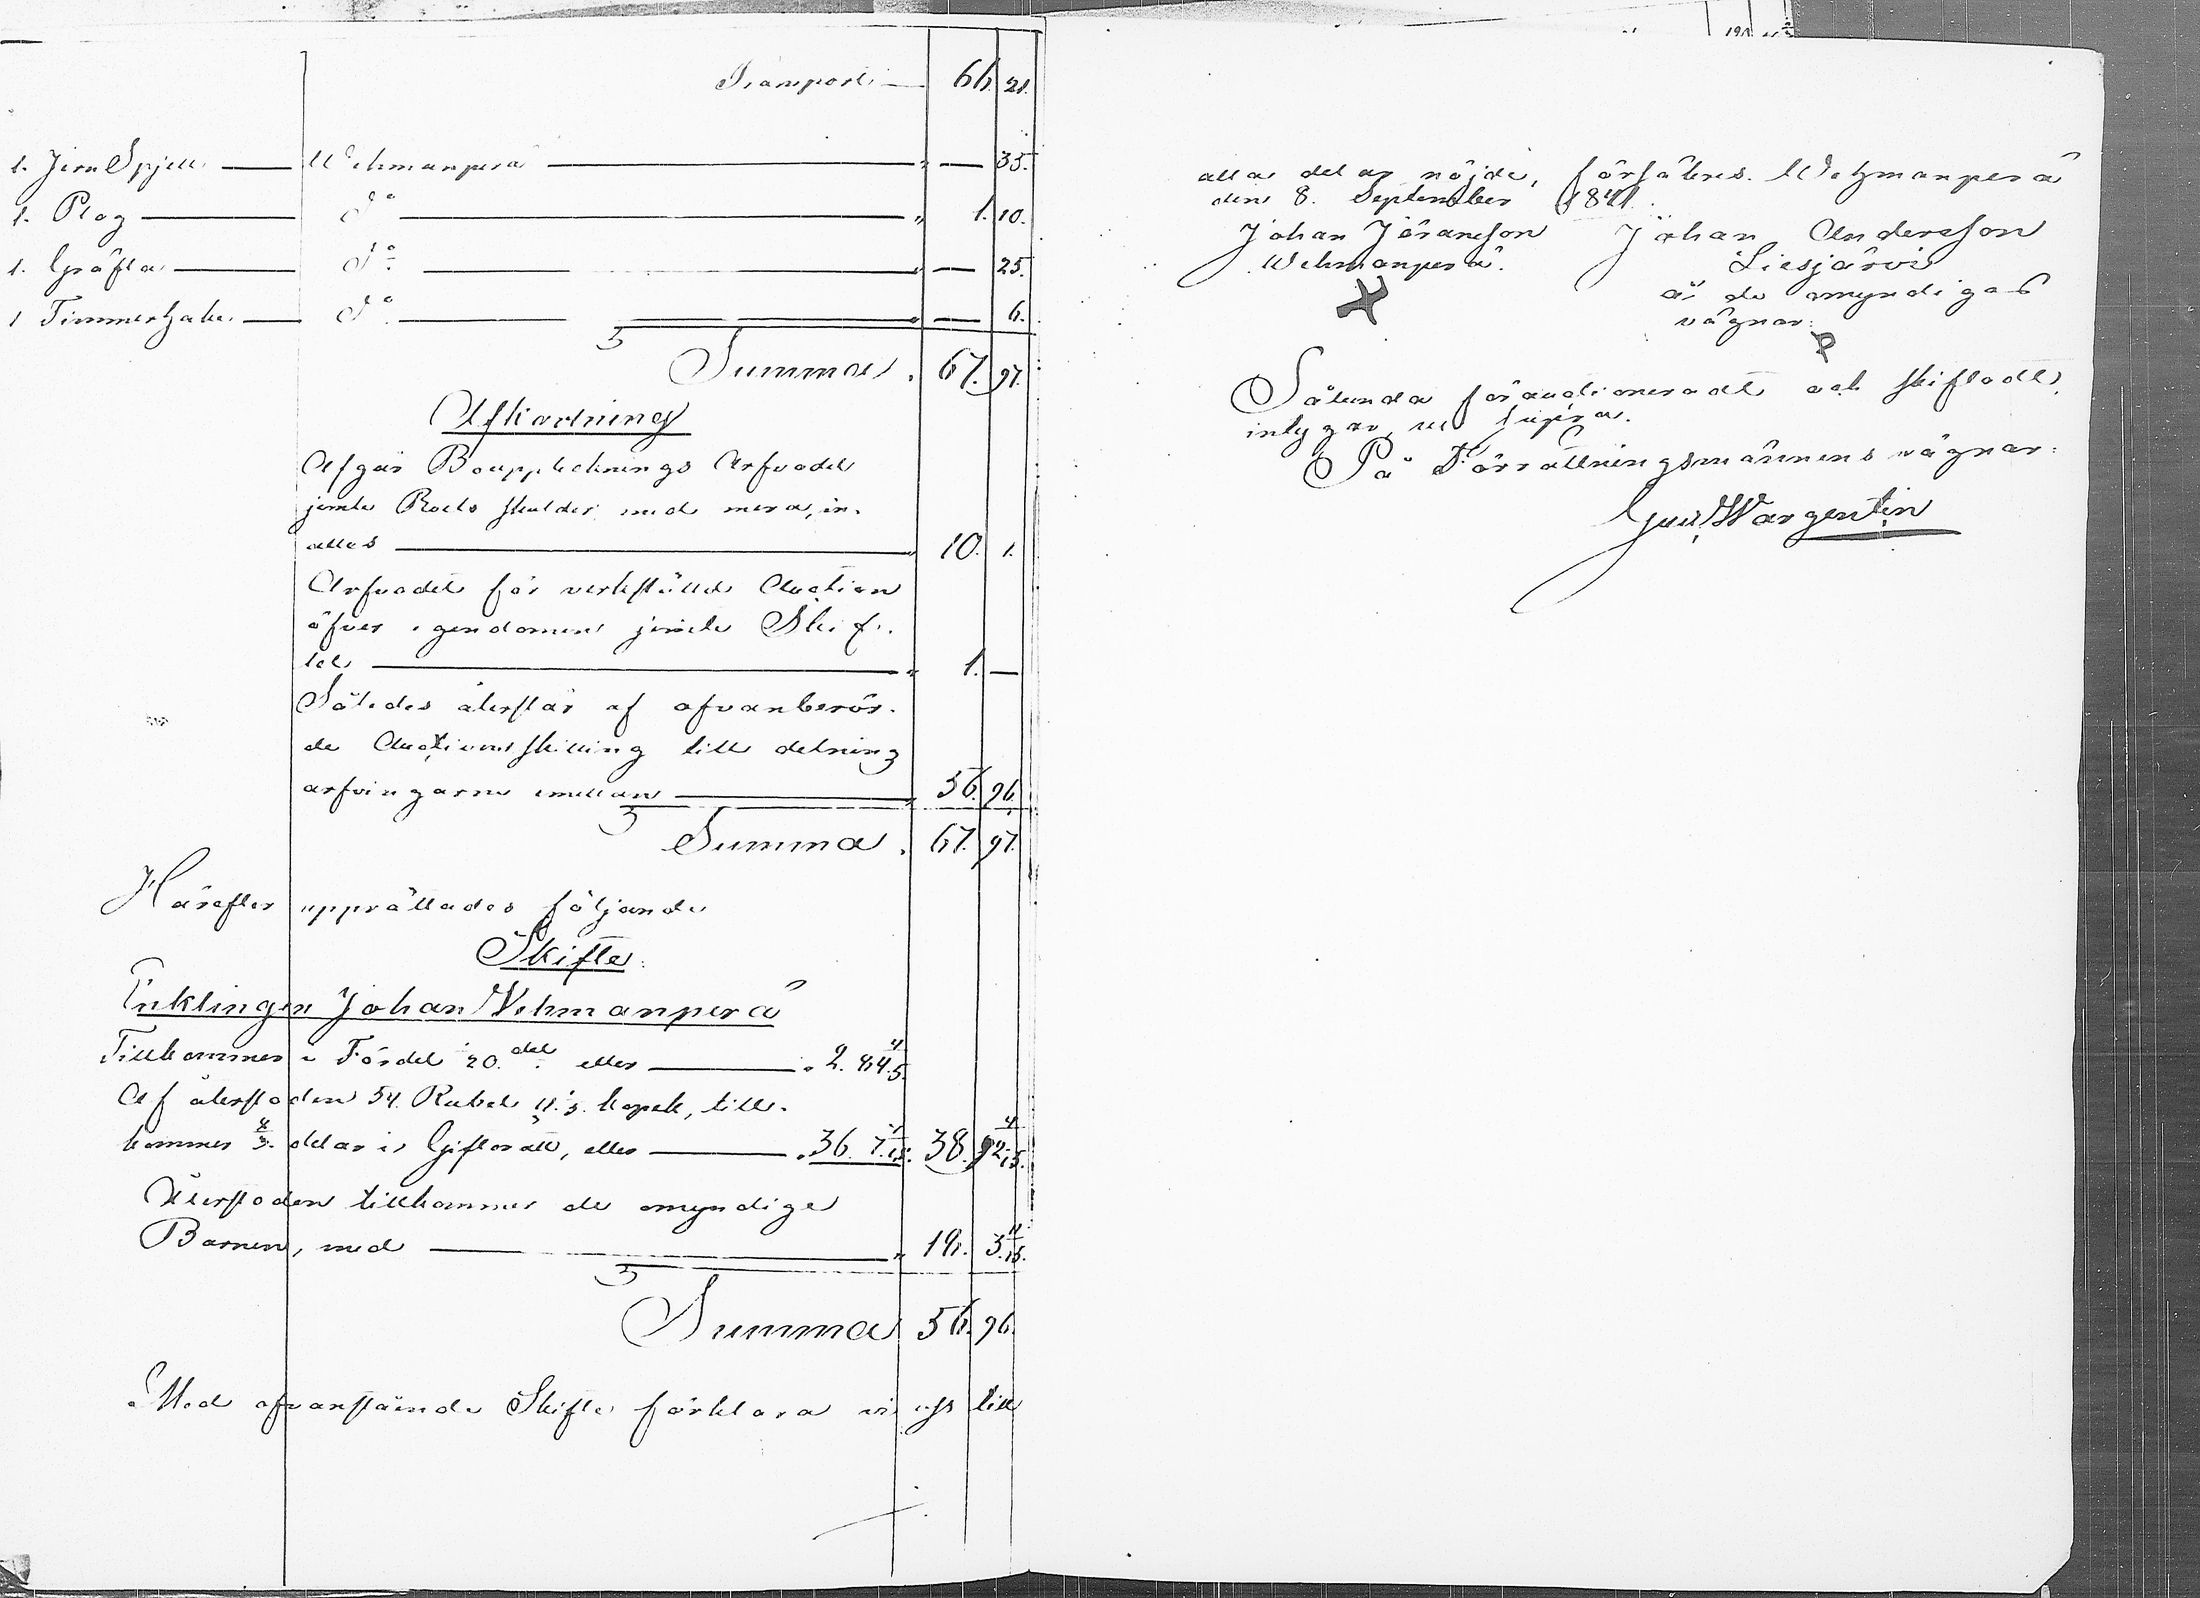 Transport 66. 21.
1. Jern Spjell Wehmanperä " — 35.
1. Plog Do " 1. 10.
1. Gräfta Do " — 25.
1 Timmerhake Do " — 6.
Summa . 67. 97.
Afkortning
Afgår Bouppteknings Arfvodet
jemte Boets skulder med mera, in-
alles " 10. 1.
Arfvodet för verkställd Auction
öfver egendomen jemte Skif-
tet " 1. —
Således återstår af ofvanberör-
de Auctions skilling till delning
arfvingarne emellan " 56. 96.
Summa . 67. 97.
Härefter upprättades följande
Skifte.
Enklingen Johan Wehmanperä
Tillkommer i Fördel 20.del eller " 2. 84 4/5.
Af återstoden 54. Rubel 11 1/5. kopek, till-
kommer 2/3. delar i Giftorätt, eller " 36. 7 7/15. 38. 92 4/15.
Återstoden tillkommer de omyndige
Barnen, med " 18. 3 11/15.
Summa 56. 96.
Med ofvanstående Skifte förklara vi oss till
alla delar nöjde, försäkres. Wehmanperä
den 8. September 1841.
Johan Jöransson Johan Andersson
Wehmanperä. Liesjärvi
å de omyndigas
vägnar:
Sålunda förauctioneradt och skiftadt,
intygar ut supra.
På Förrättningsmännens vägnar:
Gust Wargentin